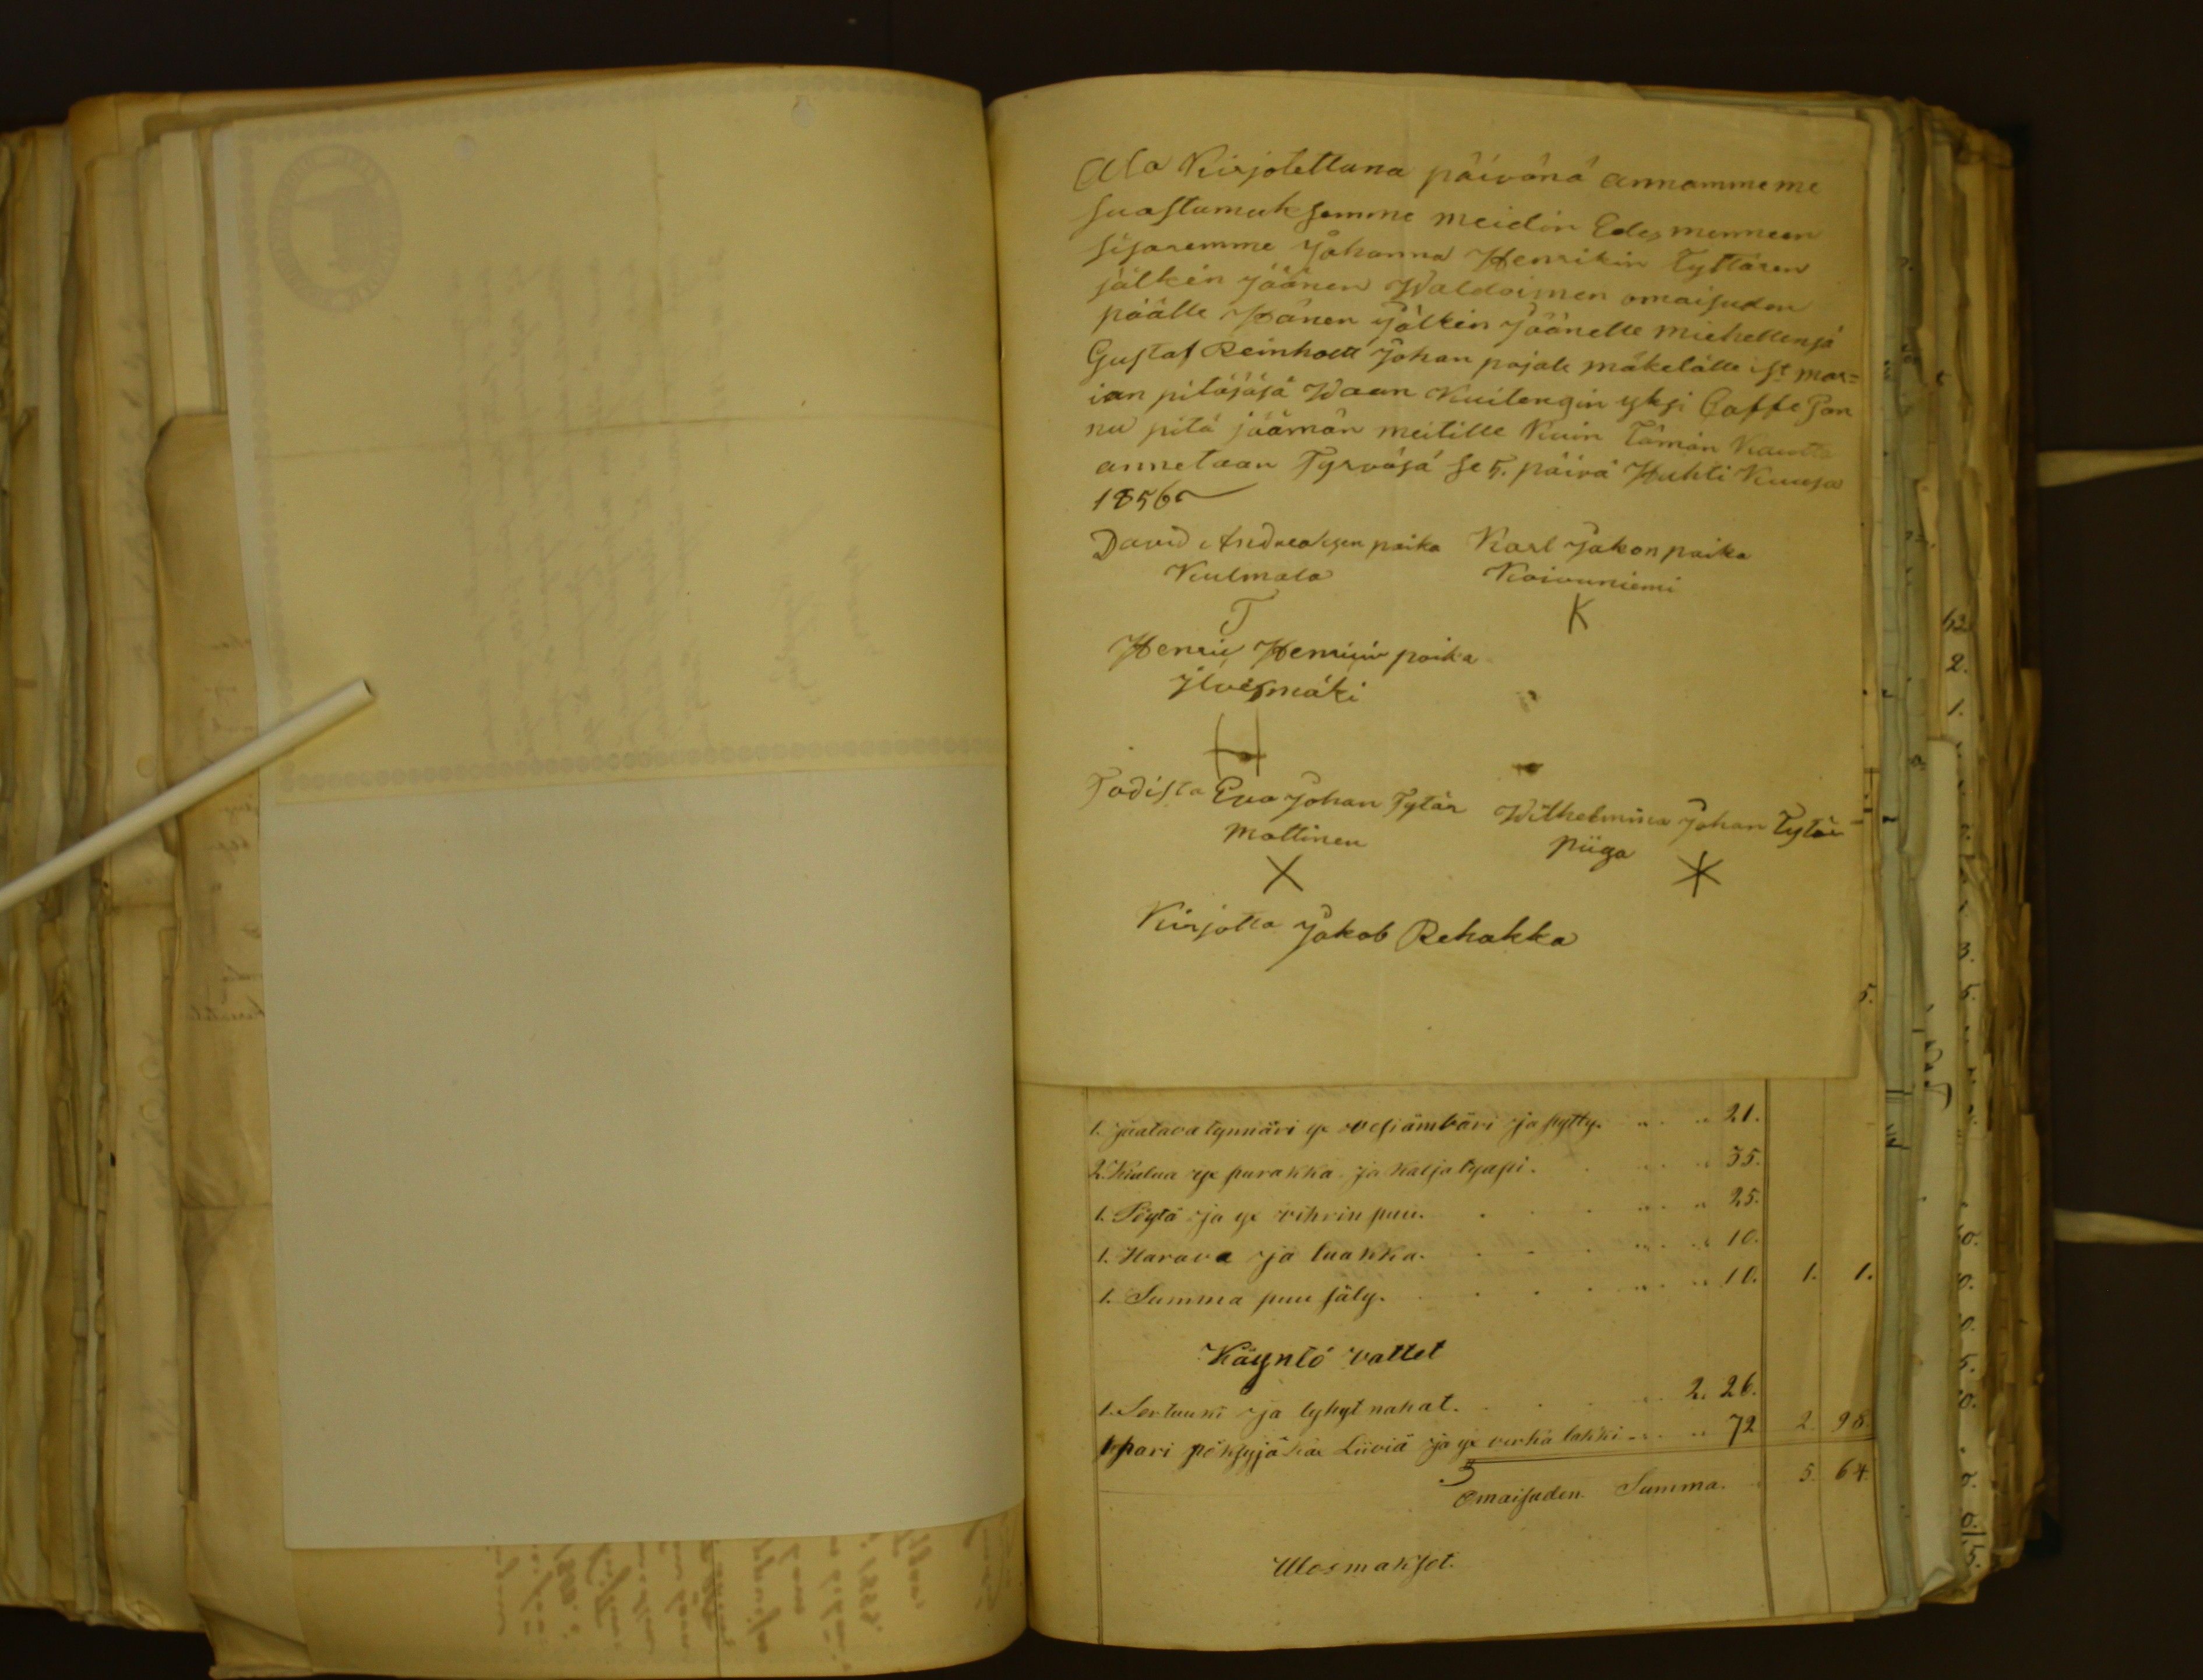 Ala Kirjotettuna päivänä annamme me
suostumuksemme meidin Edes menneen
sisaremme Johanna Henrikin Tyttären
jälkin jäänen Waldoimen omaisuden
päälle Hänen Jälkin Jäänelle miehellensä
Gustaf Reinholt Johan pojale mäkelälle i St mar=
ian pitäjäsä Waan Kuitengin yksi Caffe Pan
nu pitä jäämän meitille Kuin Tämän Kautta
annetaan Tyrväsä se 5. päivä Huhti Kuusa
1856
David Andreaksen poika Karl Jakon poika
Kulmala Koivuniemi
T K
Henrik Henrikin poika
Jlvesmäki
H
Todista Eva Johan Tytär Wilhelmina Johan Tytär
Mattinen Piiga
X
Kirjotta Jakob Rehakka
1. jaatava tynnäri yx vesiämbäri ja pytty. 21.
2. Kiulua yx purakka ja kalja tyapi. 35.
1. Pöytä ja yx vihrin puu. 25.
1. Harava ja luakka. 10.
1. Summa puu säly. 10. 1. 1.
Käyntö vattet
1. Sertuuki ja lyhyt nahat. 2. 26.
1 pari pöksyjä kax Liiviä ja yx verka lakki 72 2. 98.
Omaisuden Summa. 5. 64.
Ulosmaksot.